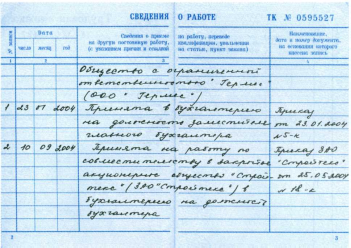 СВЕДЕНИЯ О РАБОТЕ ТК № 0595527
№ записи
Дата
число
месяц
год
Сведения о приеме на работу, переводе
на другую постоянную работу, квалификации, увольнении
(с указанием причин и ссылкой на статью, пункт закона)
Наименование,
дата и номер документа,
на основании которого
внесена запись
1 2 3 4
Общество с ограниченной
ответственностью "Гермес"
(ООО "Гермес")
1 23 01 2004 Принята в бухгалтерию Приказ
на должность заместителя от 23.01.2004
главного бухгалтера №5-к
2 10 09 2004 Принята на работу по Приказ ЗАО
совместительству в закрытое "Стройтекс"
акционерное общество "Строй- от 25.05.2004
текс" (ЗАО "Стройтекс") в № 18-к
бухгалтерию на должность
бухгалтера